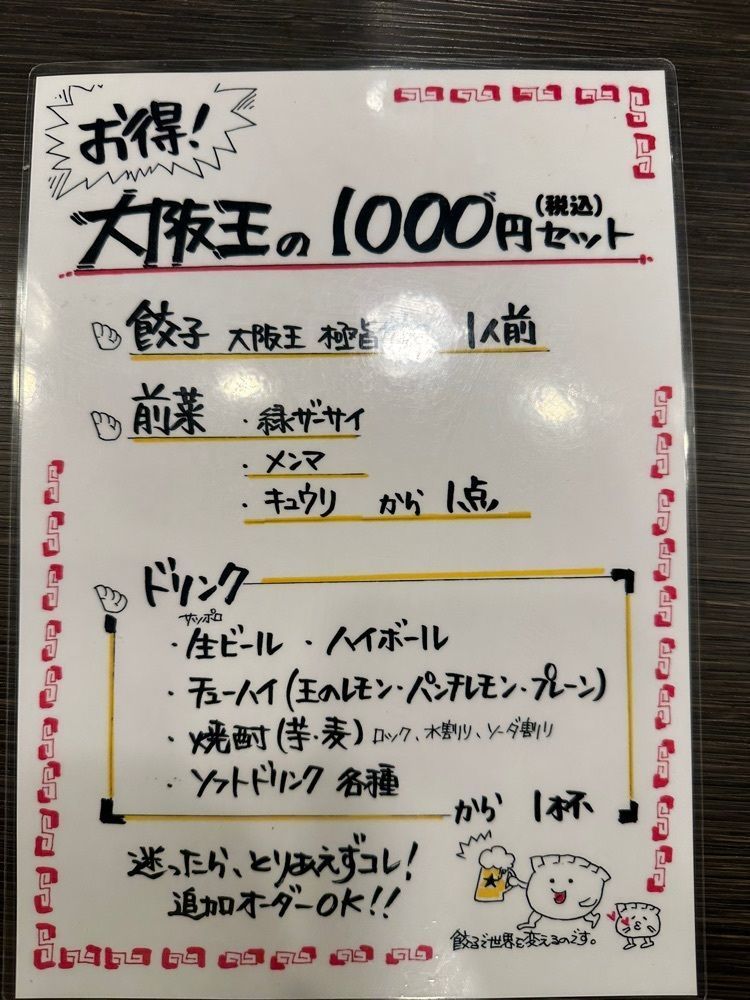 お得!
大阪王の1000円(税込)セット
餃子 大阪王 極旨 1人前
前菜 ・緑ザーサイ
・メンマ
・キュウリ から 1点
ドリンク
サッポロ
・生ビール ・ハイボール
・チューハイ(王のレモン・パンチレモン・プレーン)
・焼酎(芋・麦)ロック、水割り、ソーダ割り
・ソフトドリンク 各種
から 1杯
迷ったら、とりあえずコレ!
追加オーダーOK!!
餃子で世界を変えるのです。